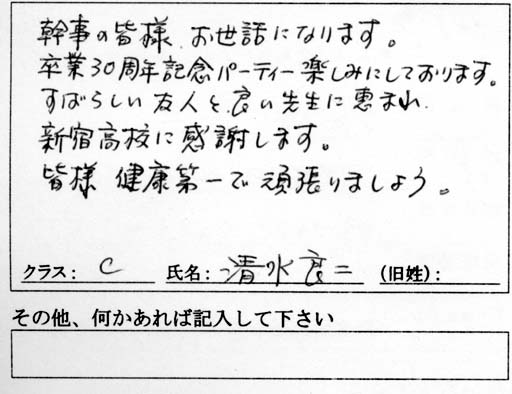 幹事の皆様 お世話になります。
卒業30周年記念パーティー楽しみにしております。
すばらしい友人と良い先生に恵まれ
新宿高校に感謝します。
皆様 健康第一で頑張りましょう。
クラス: C 氏名: 清水良二 (旧姓):
その他、何かあれば記入して下さい